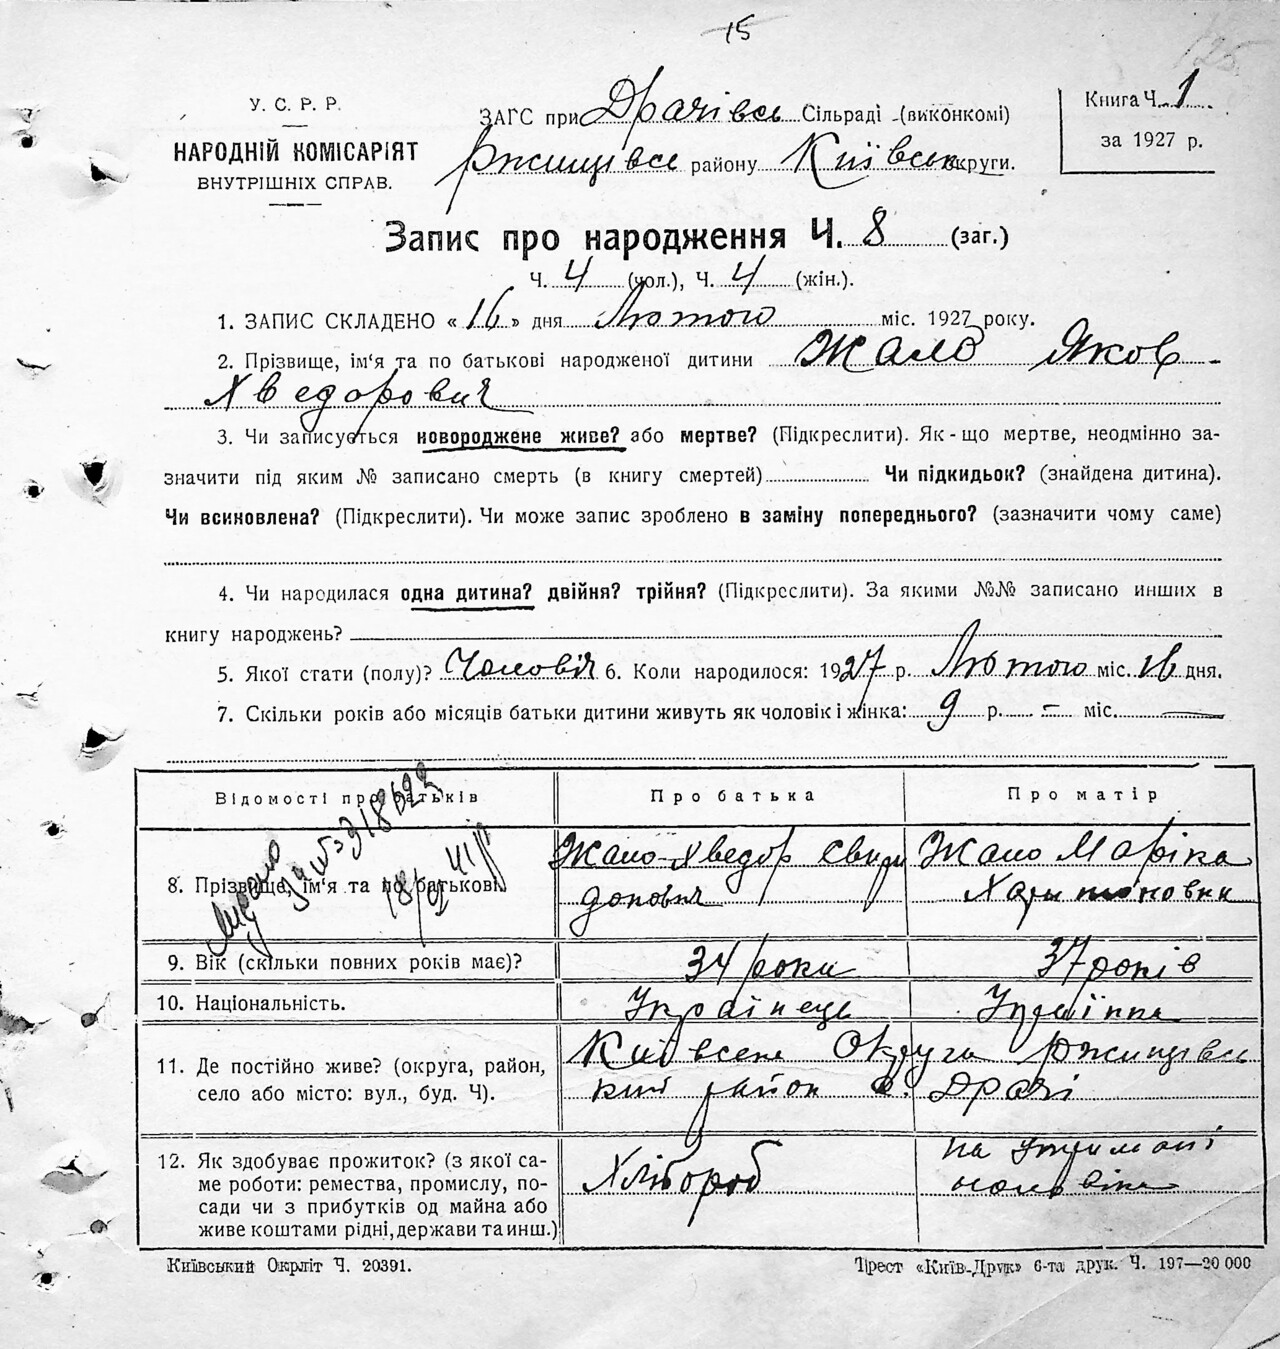 15
125
У. С. Р. Р.
НАРОДНІЙ КОМІСАРІЯТ
ВНУТРІШНІХ СПРАВ.
ЗАГС при Драчівсь Сільраді -(виконкомі)
Ржищівсь району Київськ округи.
Книга Ч. 1
за 1927 р.
Запис про народження Ч. 8 (заг.)
Ч. 4 (чол.), Ч. 4 (жін.).
1. ЗАПИС СКЛАДЕНО « 16 » дня Лютого міс. 1927 року.
2. Прізвище, ім‘я та по батькові народженої дитини Жало Яков
Хведорович
3. Чи записується новороджене живе? або мертве? (Підкреслити). Як-що мертве, неодмінно за-
значити під яким № записано смерть (в книгу смертей) Чи підкидьок? (знайдена дитина).
Чи всиновлена? (Підкреслити). Чи може запис зроблено в заміну попереднього? (зазначити чому саме)
4. Чи народилася одна дитина? двійня? трійня? (Підкреслити). За якими №№ записано инших в
книгу народжень?
5. Якої стати (полу)? Чоловіч 6. Коли народилося: 1927 р. Лютого міс. 16 дня.
7. Скільки років або місяців батьки дитини живуть як чоловік і жінка: 9 р. – міс. —
Відомості про батьків
Про батька
Про матір
8. Прізвище, ім‘я та по батькові
Жало-Хведор Свири
донович
Жало Маріка
Харитоновна
9. Вік (скільки повних років має)?
34 роки
37 років
10. Національність.
Українець
Українка
11. Де постійно живе? (округа, район,
село або місто: вул., буд. Ч).
Київсека Округа Ржищівсь
кий район с. Драчі
12. Як здобуває прожиток? (з якої са-
ме роботи: ремества, промислу, по-
сади чи з прибутків од майна або
живе коштами рідні, держави та инш.)
Хлібороб
на утримані
чоловіка
Київський Окрліт Ч. 20391.
Трест «Київ-Друк» 6-та друк. Ч. 197—20 000